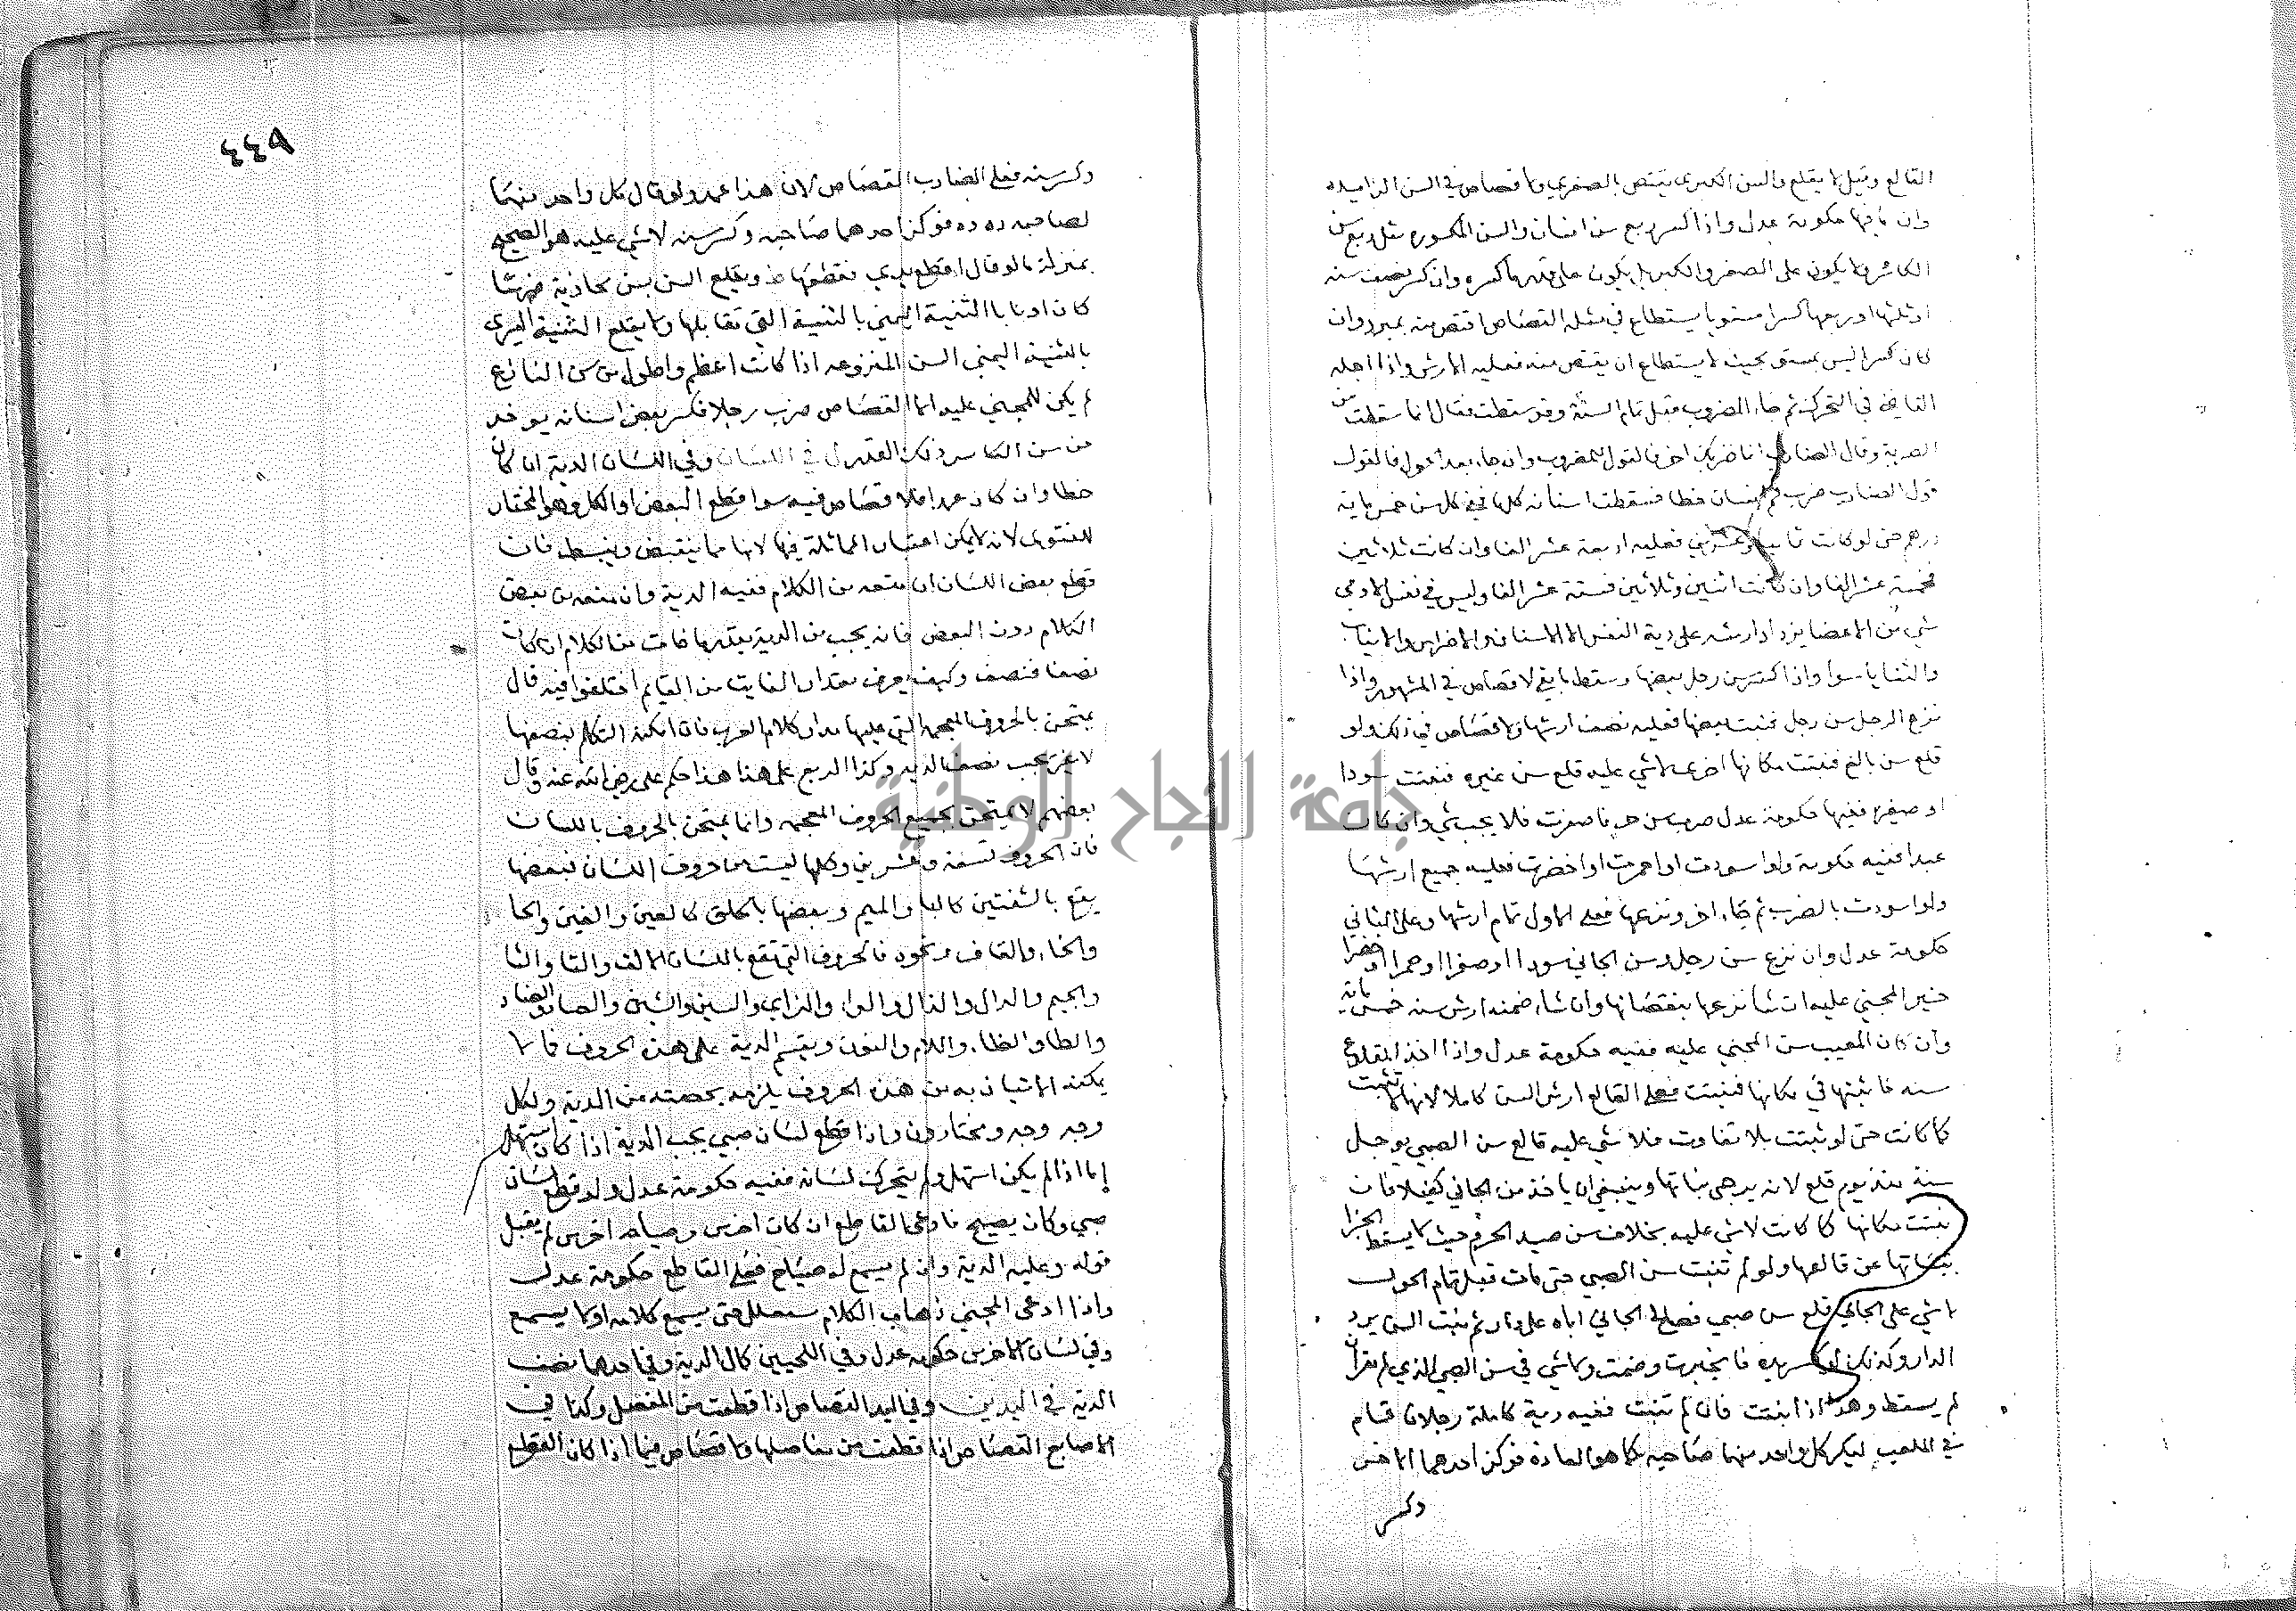 القالع وقيل لا يقلع والسن الكبرى يقتص بالصغرى ولا قصاص في السن الزايده
وان ما فيها حكومة عدل واذا كسر ربع سن انسان والسن المكسوره مثل ربع سن
الكاسر فلا يكون على الصغر والكبر بل يكون على قدر ما كسره وان كسر نصف سنه
او ثلثها او ربعها كسرا مستويا يستطاع في مثله القصاص اقتص منه بمبرد وان
كان كسرا ليس بمستوي بحيث لا يستطاع ان يقتص منه فعليه الارش واذا اجله
القاضي في التحرك ثم جاء المضروب قبل تمام السنة وقد سقطت فقال انما سقطت من
الضربة وقال الضارب انما ضربك اخر فالقول للمضروب وان جاء بعد الحول فالقول
قول الضارب ضرب فم انسان خطا فسقطت اسنانه كلها ففي كل سن خمس ماية
درهم حتى لو كانت ثمانيا وعشرين فعليه اربعة عشر الفا وان كانت ثلاثين
فخمسة عشر الفا وان كانت اثنين وثلاثين فستة عشر الفا وليس في نفس الادمي
شي من الاعضا يزداد ارشه على دية النفس الا الاسنان والاضراس والانياب
والثنايا سوا واذا كسر سن رجل بعضها وسقط ما بقي لا قصاص في المشهور واذا
نزع الرجل سن رجل فنبت بعضها فعليه نصف ارشها ولا قصاص في ذلك ولو
قلع سن بالغ فنبتت مكانها اخرى لا شي عليه قلع سن غيره فنبتت سودا
او صغيره ففيها حكومة عدل ضرب سن حر فاصفرت فلا يجب شي وان كان
عبدا ففيه حكومة ولو اسودت او احمرت او اخضرت فعليه جميع ارشها
ولو اسودت بالضرب ثم جاء اخر ونزعها فعلى الاول تمام ارشها وعلى الثاني
حكومة عدل وان نزع سن رجل وسن الجاني سودا او صفرا او حمرا او خضرا
خير المجني عليه ان شا نزعها بنقصانها وان شاء ضمنه ارش سنه خمس ماية
وان كان المعيب سن المجني عليه ففيه حكومة عدل واذا اخذ المقلوع
سنه فاثبتها في مكانها فنبتت فعلى القالع ارش السن كاملا لانها لا تثبت
كما كانت حتى لو ثبتت بلا تفاوت فلا شي عليه قالع سن الصبي يوجل
سنة منذ يوم قلع لانه يرجى نباتها وينبغي ان ياخذ من الجاني كفيلا فان
نبتت مكانها كما كانت لا شي عليه بخلاف سن صيد الحرم حيث لا يسقط الجزا
بنباتها عن قالعها ولو لم تنبت سن الصبي حتى مات قبل تمام الحول
لا شي على الجاني قلع سن صبي فصالح الجاني اباه على دار ثم نبت السن يرد
الدار وكذلك لو كسر يده فانجبرت وضمت ولا شي في سن الصبي الذي لم يثغر ان
لم يسقط وهذا اذا نبتت فان لم تنبت ففيه دية كاملة رجلان قاما
في الملعب ليكز كل واحد منهما صاحبه كما هو العادة فوكز احدهما الاخر
وكسر
٤٤٩
وكسر سنه فعلى الضارب القصاص لان هذا عمد ولو قال كل واحد منهما
لصاحبه ده ده فوكز احدهما صاحبه وكسر سنه لا شي عليه هو الصحيح
بمنزلة ما لو قال اقطع يدي فقطعها ط ويقلع السن بسن محاذية
كان او نابا الثنية اليمني بالثنية التي تقابلها ولا يقلع الثنية اليسرى
بالثنية اليمنى السن المنزوعه اذا كانت اعظم واطول من سن النازع
لم يكن للمجني عليه الا القصاص ضرب رجلا فكسر بعض اسنانه يوخذ
من سن الكاسر ذلك القدر ل في اللسان وفي اللسان الدية ان كان
خطا وان كان عمدا فلا قصاص فيه سوا قطع البعض او الكل وهو المختار
للفتوى لانه لا يمكن اعتبار المماثلة فيها لانها مما ينقبض وينبسط فان
قطع بعض اللسان ان منعه من الكلام ففيه الدية وان منعه من بعض
الكلام دون البعض فانه يجب من الدية بقدر ما فات من الكلام ان كان
نصفا فنصف وكيف يعرف مقدار الفايت من القايم اختلفوا فيه قال
يمتحن بالحروف المعجمه التي عليها مدار كلام العرب فان امكنه التكلم بنصفها
لا غير يجب نصف الدية وكذا الربع على هذا هذا حكم علي رضي الله عنه وقال
بعضهم لا يمتحن بجميع الحروف المعجمه وانما يمتحن بالحروف باللسان
فان الحروف تسعة وعشرين وكلها ليست من حروف اللسان فبعضها
يقع بالشفتين كالبا والميم وبعضها بالحلق كالعين والغين والحا
والخاء والقاف ونحوه فالحروف التي تقع باللسان الالف والتا والثا
والجيم والدال والذال والراء والزاي والسين والشين والصاد والضاد
والطا والظاء واللام والنون ويقسم الدية على هذه الحروف فما لا
يمكنه الاتيان به من هذه الحروف يلزمه بحصته من الدية ولكل
وجه وجه ومختارون واذا قطع لسان صبي يجب الدية اذا كان استهل
اما اذا لم يكن استهل ولم يتحرك لسانه ففيه حكومة عدل ولو قطع لسان
صبي وكان يصيح فادعى القاطع ان كان اخرس وصياحه اخرس لم يقبل
قوله وعليه الدية وان لم يسمع له صياح فعلى القاطع حكومة عدل
واذا ادعى المجني ذهاب الكلام يستغفل حتى يسمع كلامه او لا يسمع
وفي لسان الاخرس حكومه عدل وفي اللحيين كمال الدية وفي احدهما نصف
الدية في اليدين وفي اليد القصاص اذا قطعت من المفصل وكذا في
الاصابع القصاص اذا قطعت من مفاصلها ولا قصاص فيما اذا كان القطع
جامعة النجاح الوطنية